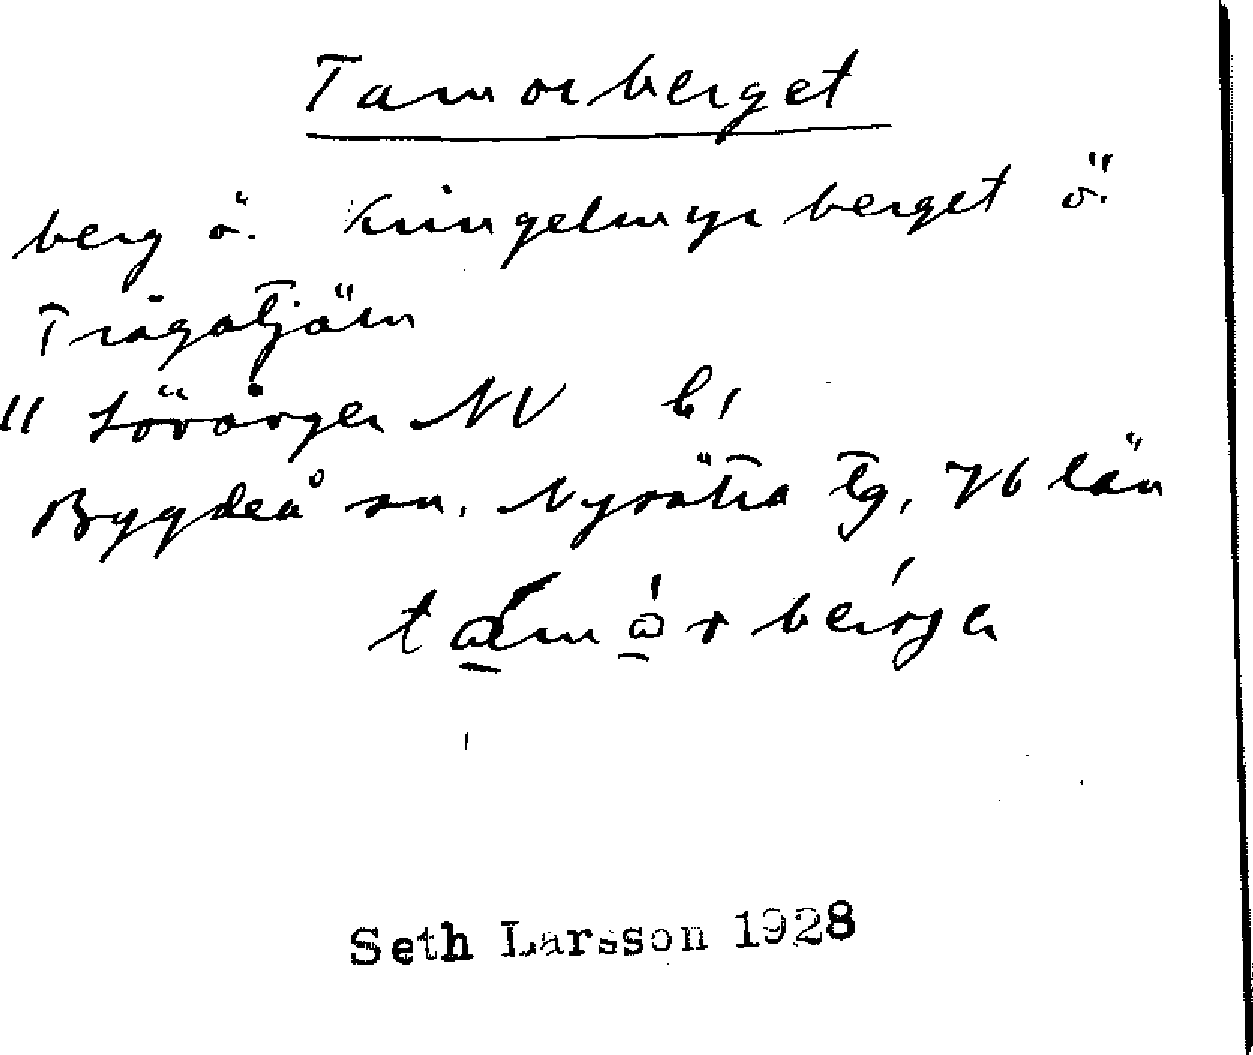 Tamorberget
berg ö. Kringelmyrberget ö.
Trågatjärn
" Lövånger NV bl
Bygdeå sn. Nysätra tg, Vb län
Seth Larsson 1928